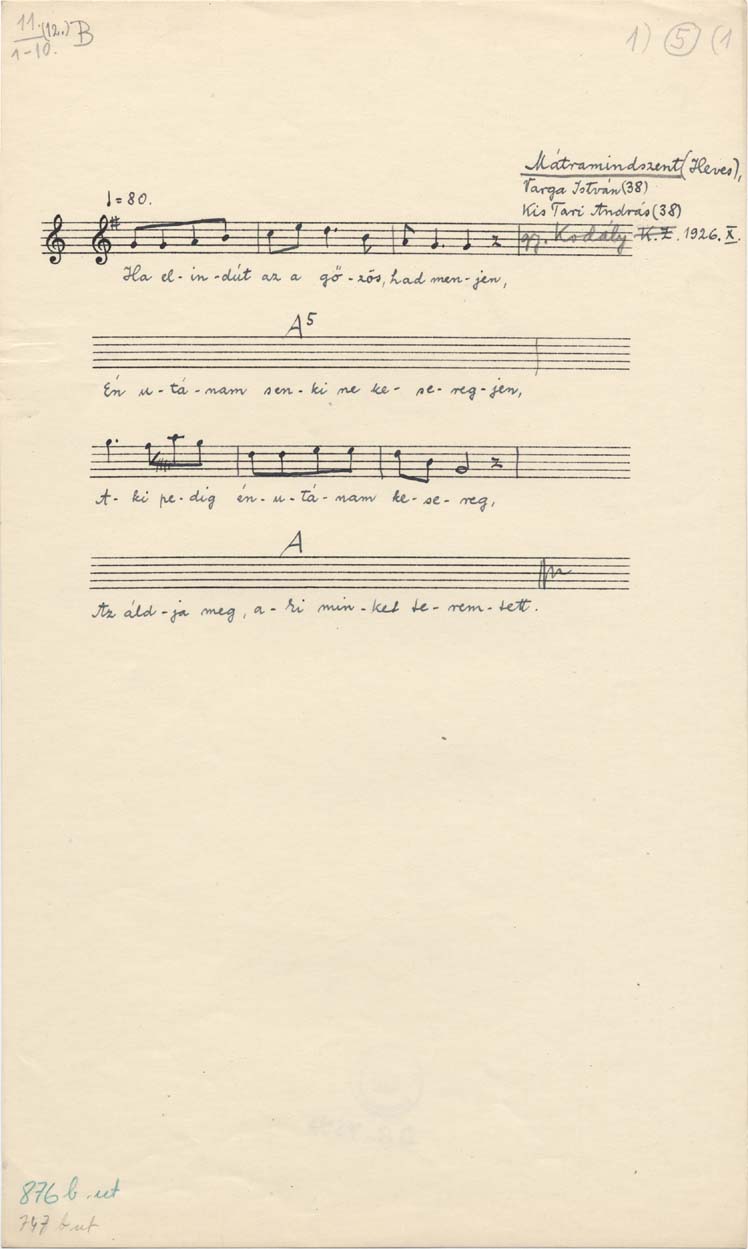 11.(12.) B
1-10.
1) 5 (1
Mátramindszent (Heves),
Varga István (38)
Kis Tari András (38)
gy. Kodály K. Z. 1926. X.
♩=80.
Ha el-in-dút az a gő-zös, had men-jen,
A5
Én u-tá-nam sen-ki ne ke-se-reg-jen,
A-ki pe-dig én-u-tá-nam ke-se-reg,
A
Az áld-ja meg, a-ki min-ket te-rem-tett.
876 b. ut
747 b ut